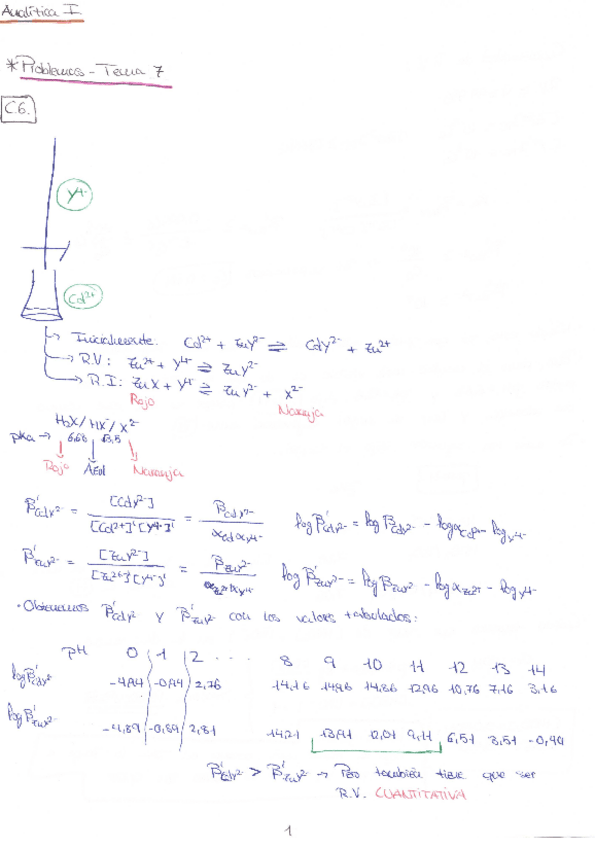 Analítica I
* Problemas - Tema 7
C.6.
Y⁴⁻
Cd²⁺
Inicialmente: Cd²⁺ + ZnY²⁻ ⇌ CdY²⁻ + Zn²⁺
R.V: Zn²⁺ + Y⁴⁻ ⇌ ZnY²⁻
R.I: ZnX + Y⁴⁻ ⇌ ZnY²⁻ + X²⁻
Rojo Naranja
H₂X/HX⁻/X²⁻
pka → 6,68 13,5
Rojo Azul Naranja
β'CdY²⁻ = [CdY²⁻] / [Cd²⁺]'[Y⁴⁻]' = βCdY²⁻ / αCd αY⁴⁻ log β'CdY²⁻ = log βCdY²⁻ - log αCd²⁺ - log Y⁴⁻
β'ZnY²⁻ = [ZnY²⁻] / [Zn²⁺]'[Y⁴⁻]' = βZnY²⁻ / αZn²⁺ αY⁴⁻ log β'ZnY²⁻ = log βZnY²⁻ - log αZn²⁺ - log Y⁴⁻
· Obtenemos β'CdY²⁻ y β'ZnY²⁻ con los valores tabulados:
pH 0 1 2 ... 8 9 10 11 12 13 14
log β'CdY²⁻ -4,94 -0,94 2,76 14,16 14,96 14,86 12,96 10,76 7,16 3,16
log β'ZnY²⁻ -4,89 -0,89 2,81 14,21 13,91 12,01 9,11 6,51 3,51 -0,49
β'CdY²⁻ > β'ZnY²⁻ → Pero también tiene que ser
R.V. CUANTITATIVA
1